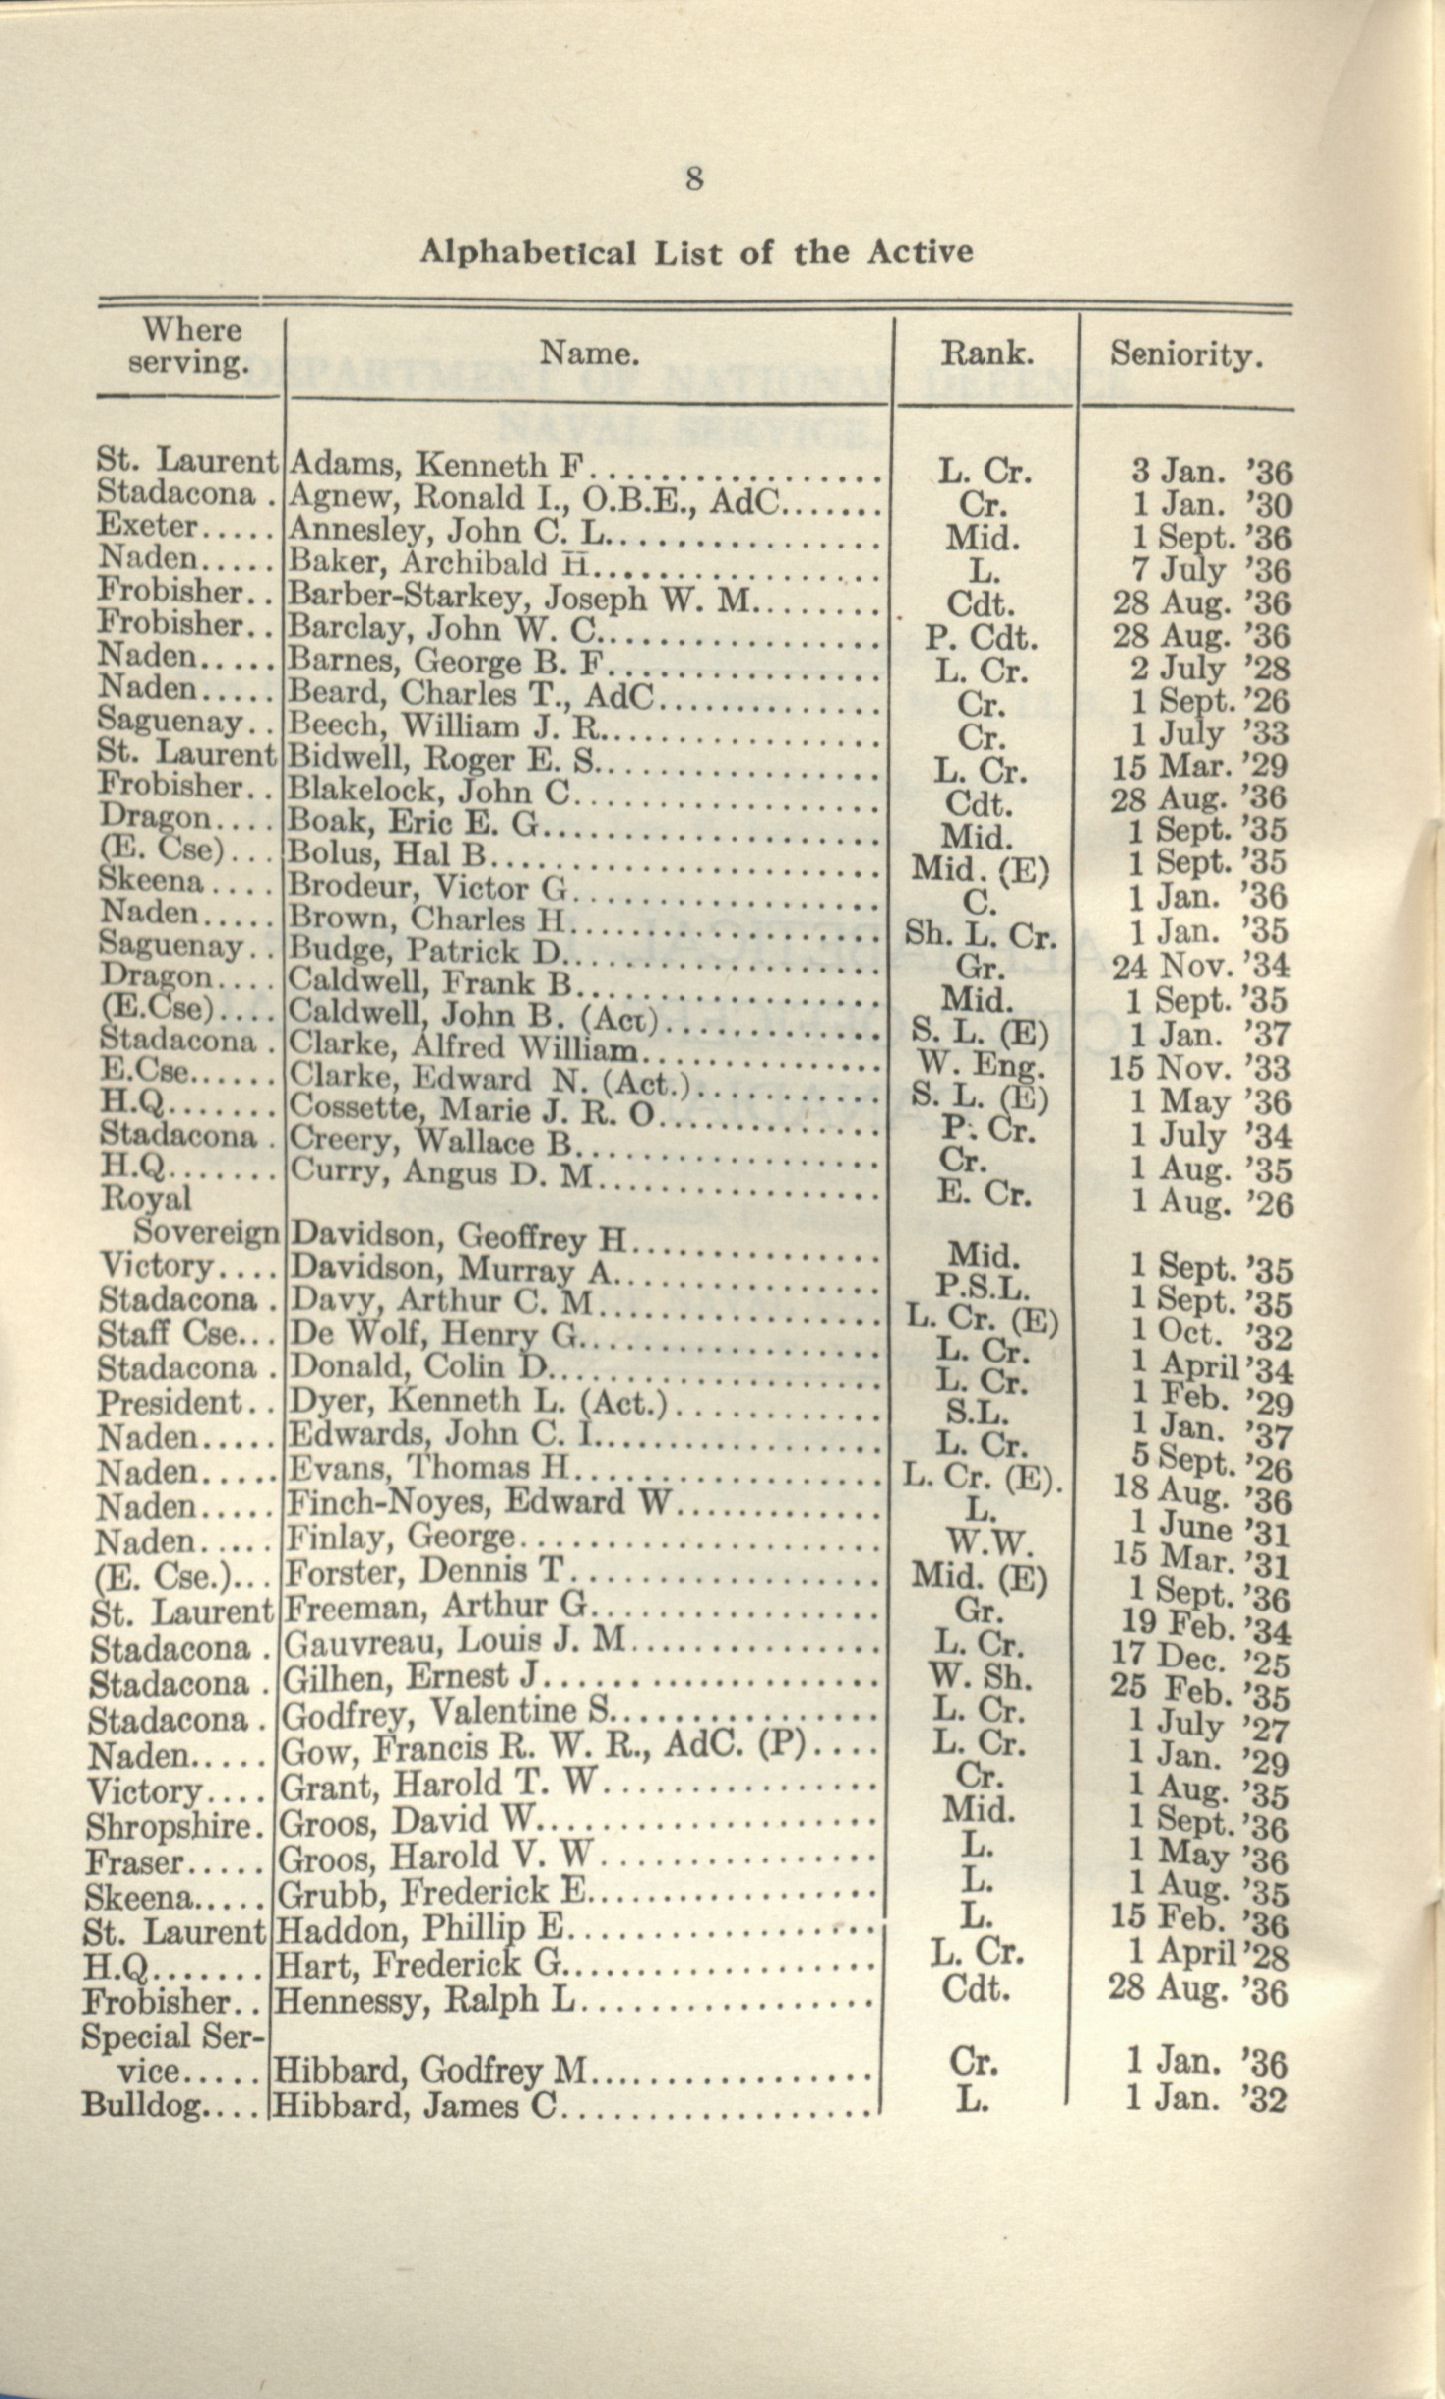 8
Alphabetical List of the Active
Where serving. Name. Rank. Seniority.
St. Laurent Adams, Kenneth F. L. Cr. 3 Jan. '36
Stadacona . Agnew, Ronald I., O.B.E., AdC. Cr. 1 Jan. '30
Exeter..... Annesley, John C. L. Mid. 1 Sept. '36
Naden..... Baker, Archibald H. L. 7 July '36
Frobisher.. Barber-Starkey, Joseph W. M. Cdt. 28 Aug. '36
Frobisher.. Barclay, John W. C. P. Cdt. 28 Aug. '36
Naden..... Barnes, George B. F. L. Cr. 2 July '28
Naden..... Beard, Charles T., AdC. Cr. 1 Sept. '26
Saguenay.. Beech, William J. R. Cr. 1 July '33
St. Laurent Bidwell, Roger E. S. L. Cr. 15 Mar. '29
Frobisher.. Blakelock, John C. Cdt. 28 Aug. '36
Dragon.... Boak, Eric E. G. Mid. 1 Sept. '35
(E. Cse)... Bolus, Hal B. Mid. (E) 1 Sept. '35
Skeena.... Brodeur, Victor G. C. 1 Jan. '36
Naden..... Brown, Charles H. Sh. L. Cr. 1 Jan. '35
Saguenay.. Budge, Patrick D. Gr. 24 Nov. '34
Dragon.... Caldwell, Frank B. Mid. 1 Sept. '35
(E.Cse).... Caldwell, John B. (Act) S. L. (E) 1 Jan. '37
Stadacona . Clarke, Alfred William. W. Eng. 15 Nov. '33
E.Cse...... Clarke, Edward N. (Act.) S. L. (E) 1 May '36
H.Q....... Cossette, Marie J. R. O. P. Cr. 1 July '34
Stadacona . Creery, Wallace B. Cr. 1 Aug. '35
H.Q....... Curry, Angus D. M. E. Cr. 1 Aug. '26
Royal
Sovereign Davidson, Geoffrey H. Mid. 1 Sept. '35
Victory.... Davidson, Murray A. P.S.L. 1 Sept. '35
Stadacona . Davy, Arthur C. M. L. Cr. (E) 1 Oct. '32
Staff Cse... De Wolf, Henry G. L. Cr. 1 April '34
Stadacona . Donald, Colin D. L. Cr. 1 Feb. '29
President.. Dyer, Kenneth L. (Act.) S.L. 1 Jan. '37
Naden..... Edwards, John C. I. L. Cr. 5 Sept. '26
Naden..... Evans, Thomas H. L. Cr. (E). 18 Aug. '36
Naden..... Finch-Noyes, Edward W. L. 1 June '31
Naden..... Finlay, George. W.W. 15 Mar. '31
(E. Cse.)... Forster, Dennis T. Mid. (E) 1 Sept. '36
St. Laurent Freeman, Arthur G. Gr. 19 Feb. '34
Stadacona . Gauvreau, Louis J. M. L. Cr. 17 Dec. '25
Stadacona . Gilhen, Ernest J. W. Sh. 25 Feb. '35
Stadacona . Godfrey, Valentine S. L. Cr. 1 July '27
Naden..... Gow, Francis R. W. R., AdC. (P) L. Cr. 1 Jan. '29
Victory.... Grant, Harold T. W. Cr. 1 Aug. '35
Shropshire. Groos, David W. Mid. 1 Sept. '36
Fraser..... Groos, Harold V. W. L. 1 May '36
Skeena..... Grubb, Frederick E. L. 1 Aug. '35
St. Laurent Haddon, Phillip E. L. 15 Feb. '36
H.Q....... Hart, Frederick G. L. Cr. 1 April '28
Frobisher.. Hennessy, Ralph L. Cdt. 28 Aug. '36
Special Ser-
vice..... Hibbard, Godfrey M. Cr. 1 Jan. '36
Bulldog.... Hibbard, James C. L. 1 Jan. '32